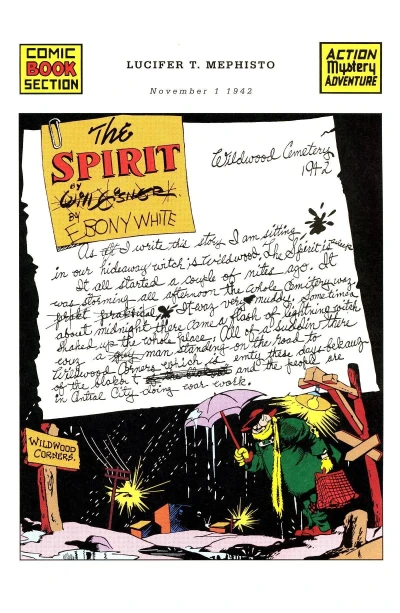 COMIC
BOOK
SECTION
LUCIFER T. MEPHISTO
November 1 1942
ACTION
Mystery
ADVENTURE
The
SPIRIT
BY
Will Eisner
BY
EBONY WHITE
Wildwood Cemetery
1942
As I write this story I am sitting
in our hideaway witch is Wildwood. The Spirit is
It all started a couple of nites ago. It
was storming all afternoon the whole cemitery wuz
It wuz very muddy. Sometime
about midnight there come a flash of lightning witch
shaked up the whole place. All of a suddin there
wuz a man standing on the road to
Wildwood Corners which is emty these days becauz
of the blakout and the people are
in Cntral City doing war work.
WILDWOOD
CORNERS.